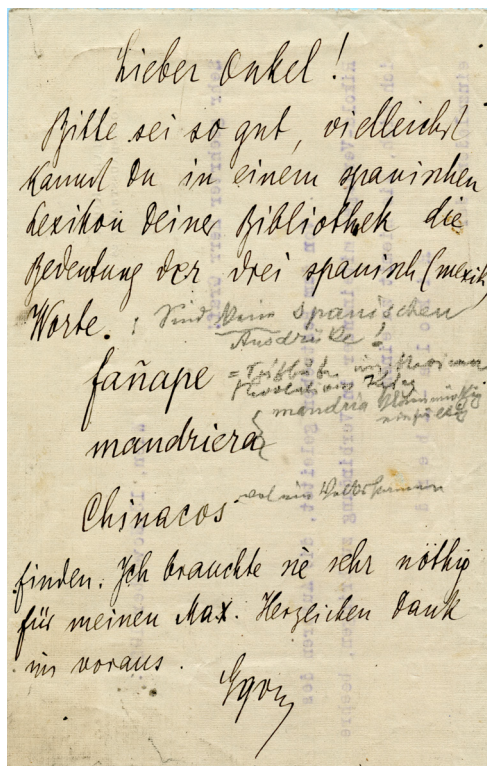 Lieber Onkel!
Bitte sei so gut, vielleicht
kannst du in einem spanischen
Lexikon deiner Bibliothek die
Bedeutung der drei spanisch (mexik
Worte. : Sind keine spanischen
Ausdrücke!
fañape =
mandria
mandriera
Chinacos
finden. Ich brauchte sie sehr nöthig
für meinen Max. Herzlichen Dank
im voraus.
Egon